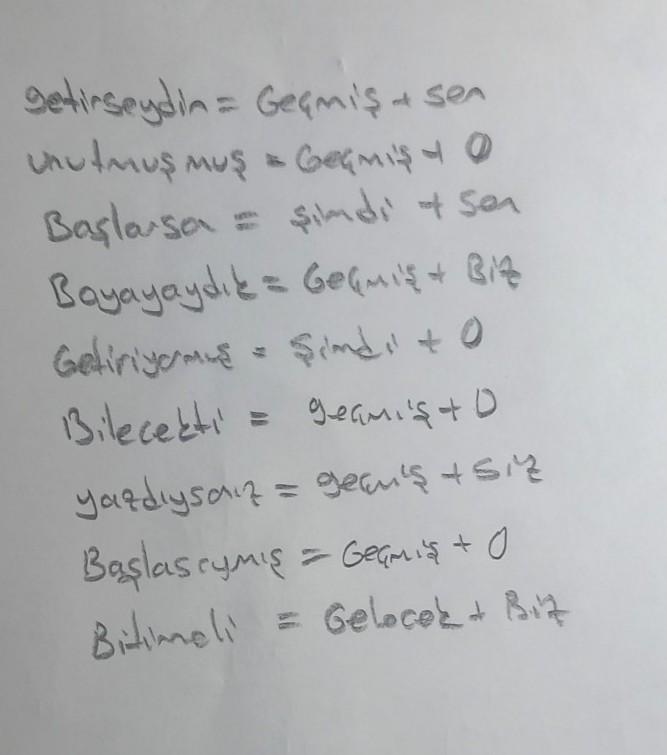 getirseydin = Geçmiş + sen
unutmuşmuş = Geçmiş + O
Başlarsan = şimdi + Sen
Boyayaydık = Geçmiş + Biz
Getiriyormuş = Şimdi + O
Bilecekti = geçmiş + O
yazdıysanız = geçmiş + siz
Başlasaymış = Geçmiş + O
Bitimeli = Gelecek + Biz